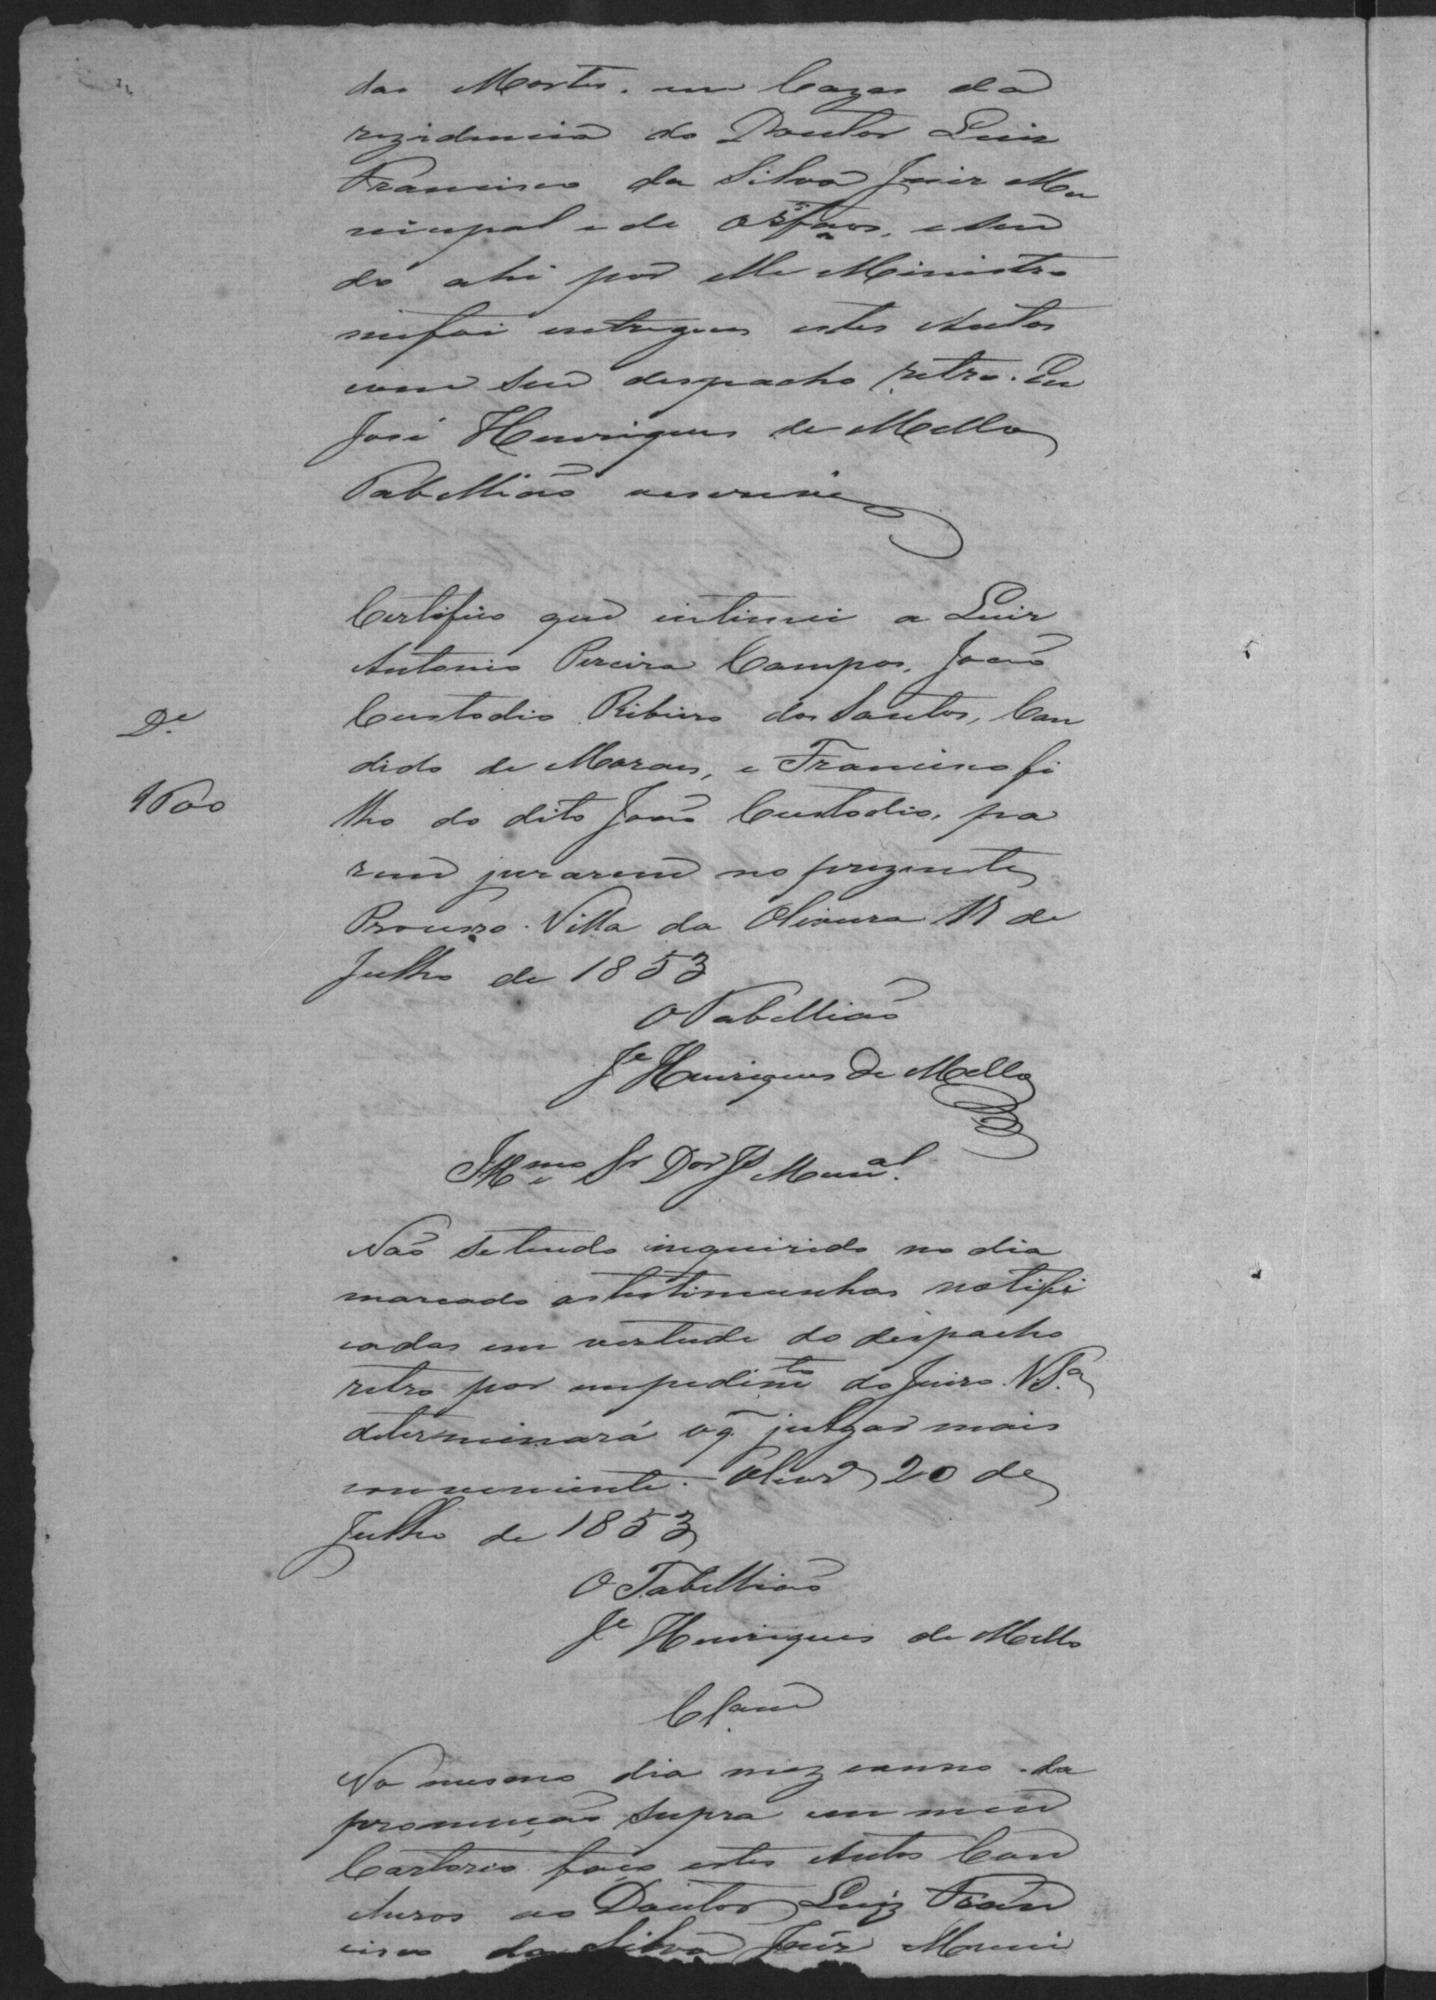 das Mortes. em Cazas da
rezidencia do Doutor Luiz
Francisco da Silva Juiz Mu
nicipal e de Orfaos, e sen
do ahi por elle Ministro
mefoi entregues estes Autos
com seu despacho retro. Eu
José Henriques de Mello
Tabellião oescrevi
Certifico que intimei a Luiz
Antonio Pereira Campos, João
Custodio Ribeiro dos Santos, Can
dido de Moraes, e Francisco fi
lho do dito João Custodio, pa
rem jurarem no prezente
Processo. Villa da Oliveira 11 de
Julho de 1853
O Tabellião
Je. Henriques de Mello
De.
Illmo Sr Dor J Munal.
Não se tendo inquirido no dia
marcado astestimunhas notifi
cadas em vertude do despacho
retro por impedimto do Juizo. V.Sa
determinará oq̃ julgar mais
conveniente. Olivra 20 de
Julho de 1853
O Tabellião
Je. Henriques de Mello
Clsam
No mesmo dia mez eanno da
promoução supra em meu
Cartorio faço estes Autos Con
cluzos ao Doutor Luiz Fran
cisco da Silva Juiz Muni